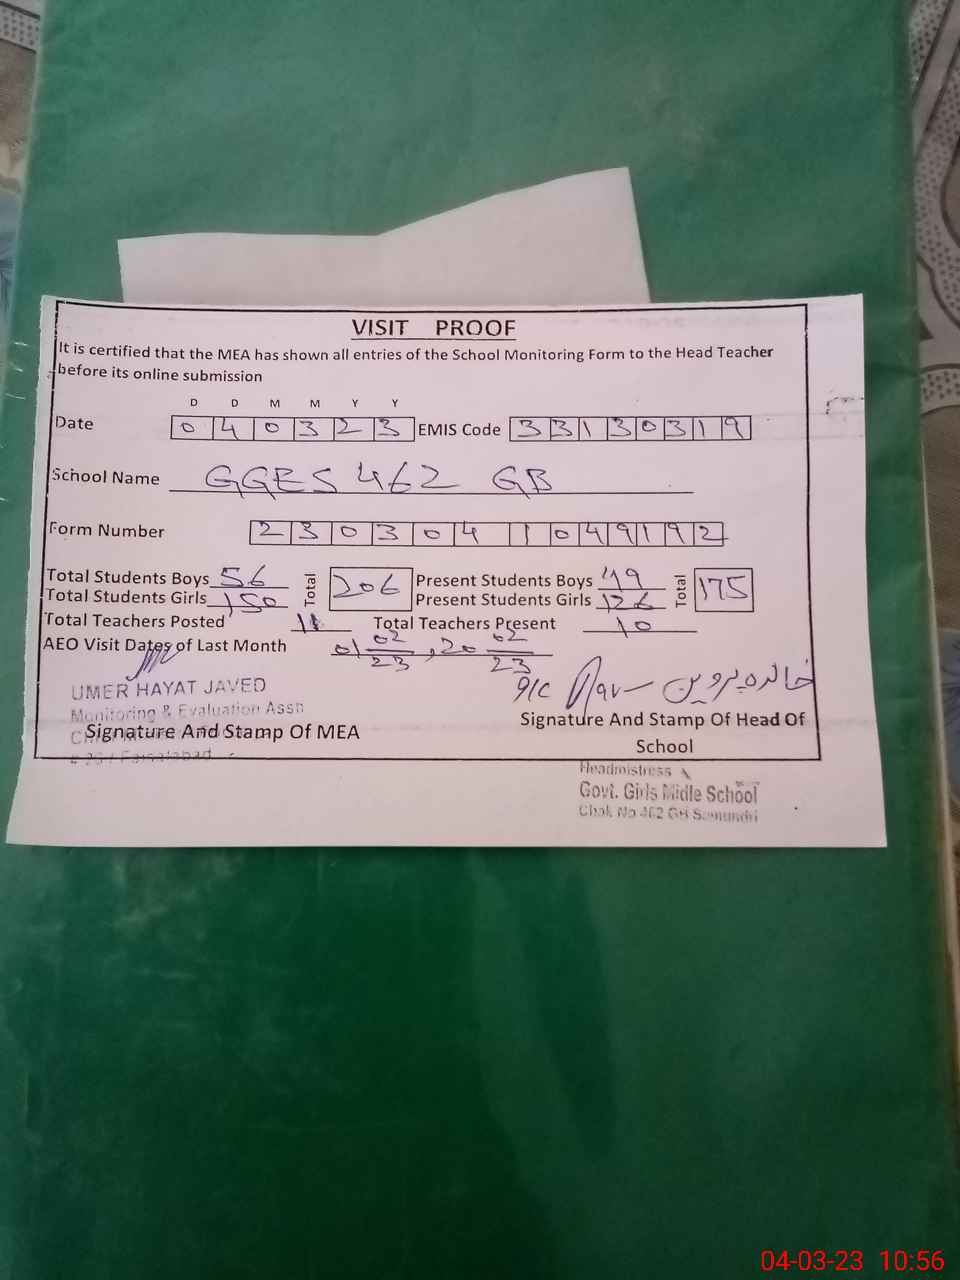 VISIT PROOF
It is certified that the MEA has shown all entries of the School Monitoring Form to the Head Teacher
before its online submission
D D M M Y Y
Date 0 4 0 3 2 3 EMIS Code 3 3 1 3 0 3 1 9
School Name GGES 462 GB
Form Number 2 3 0 3 0 4 1 0 4 9 1 9 2
Total Students Boys 56 Total 206 Present Students Boys 49 Total 175
Total Students Girls 150 Present Students Girls 126
Total Teachers Posted 11 Total Teachers Present 10
AEO Visit Dates of Last Month 01 02/23, 20 02/23
خالدہ پروین
UMER HAYAT JAVED
Monitoring & Evaluation Asstt
Signature And Stamp Of MEA
Signature And Stamp Of Head Of
School
Headmistress
Govt. Girls Midle School
Chak No 462 GB Samundri
04-03-23 10:56